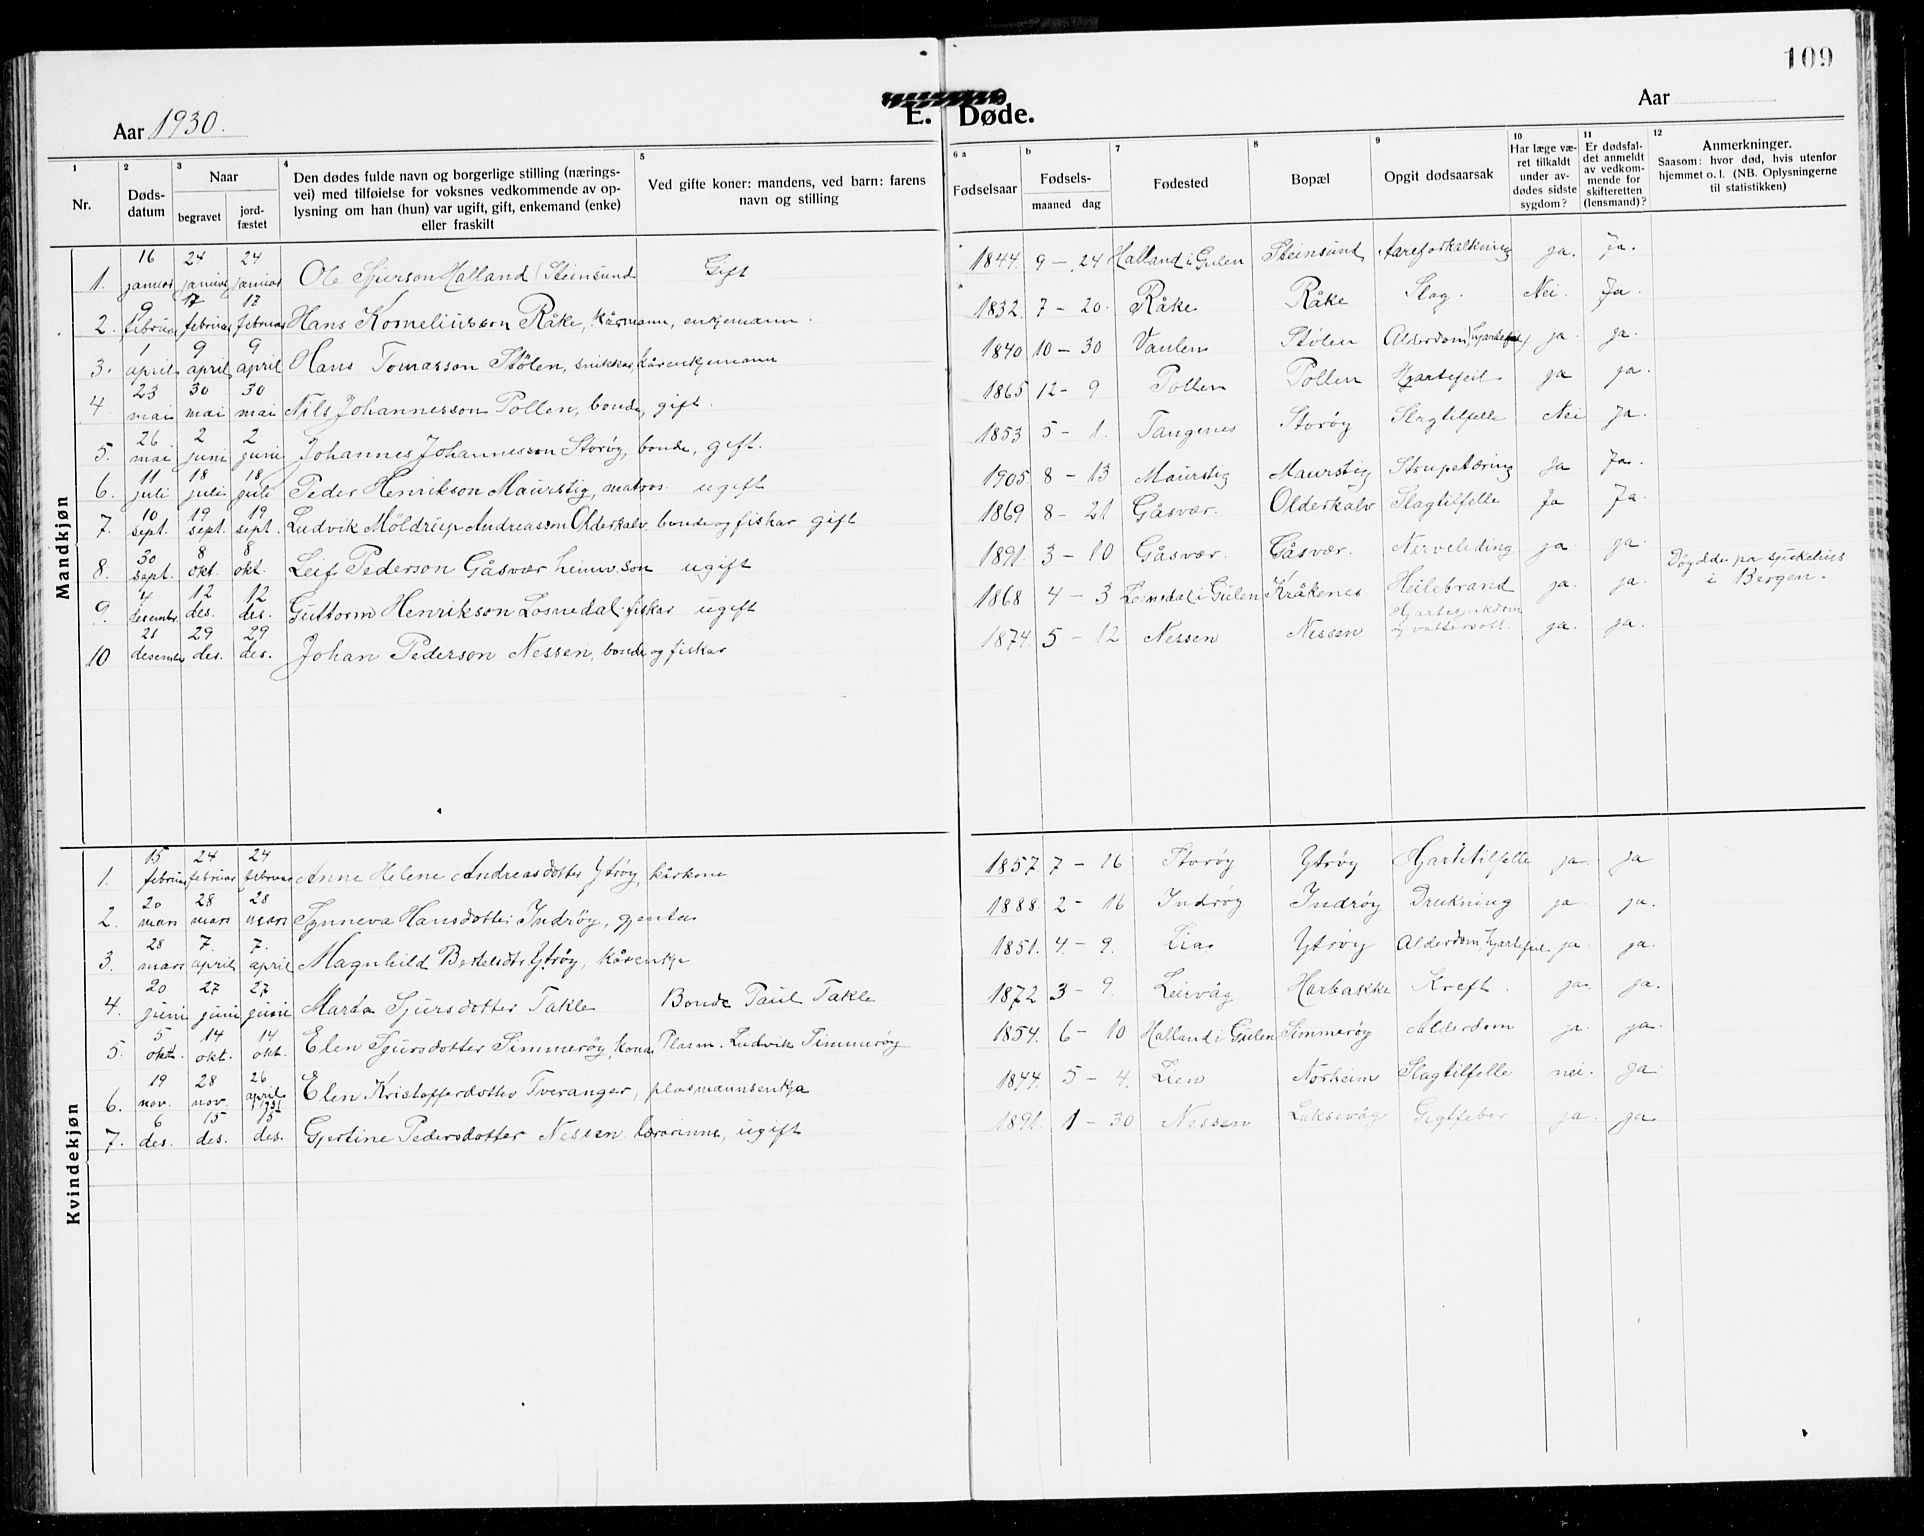 109
Aar 1930.
E. Døde.
Aar
1 Nr.
2 Døds-datum
3 Naar
begravet
jord-fæstet
4 Den dødes fulde navn og borgerlige stilling (nærings-
vei) med tilføielse for voksnes vedkommende av op-
lysning om han (hun) var ugift, gift, enkemand (enke)
eller fraskilt
5 Ved gifte koner: mandens, ved barn: farens
navn og stilling
6 a Fødselsaar
b Fødsels-
maaned dag
7 Fødested
8 Bopæl
9 Opgit dødsaarsak
10 Har læge væ-
ret tilkaldt
under av-
dødes sidste
sygdom?
11 Er dødsfal-
det anmeldt
av vedkom-
mende for
skifteretten
(lensmand)?
12 Anmerkninger.
Saasom: hvor død, hvis utenfor
hjemmet o. l. (NB. Oplysningerne
til statistikken)
Mandkjøn
1. 16 januar 24 januar 24 januar Ole Sjurson Halland (Steinsund Gift 1844. 9 - 24 Halland i Gulen Steinsund Aareforkalkning ja. Ja.
2. 9 februar 17 februar 17 februar Hans Korneliusson Råke, kårmann, enkjemann. 1832. 7 - 20. Råke Råke Slag. Nei. Ja.
3. 1 april 9 april 9 april Hans Tomasson Stølen, snikkar, kårenkjemann 1840 10 - 30 Stølen Alderdom, hjartefeil ja. ja.
4. 23 mai 30 mai 30 mai Nils Johannesson Pollen, bonde, gift. 1865 12 - 9 Pollen Pollen Hjartefeil ja ja.
5. 26 mai 2 juni 2 juni Johannes Johannesson Storøy, bonde, gift. 1853 5 - 1. Tangenes Storøy Slagtilfelle Nei Ja.
6. 11 juli 18 juli 18 juli Peder Henrikson Maurstig, matros. ugift 1905 8 - 13 Maurstig Maurstig Strupetæring Ja Ja.
7. 10 sept. 19 sept. 19 sept. Ludvik Möldrup Andreason Olderkalv. bonde og fiskar gift 1869 8 - 21 Gåsvær. Olderkalv Slagtilfelle Ja Ja.
8. 30 sept. 8 okt. 8 okt. Leif Pederson Gåsvær heimv. son ugift 1891. 3 - 10 Gåsvær. Gåsvær. Nerveliding ja ja. Døydde pa sjukehus
i Bergen.
9. 4 desember. 12 des. 12 des. Guttorm Henrikson Losnedal. fiskar ugift 1868 4 - 3 Losnedal i Gulen Kråkenes Heilebrand ja. ja.
10 21 desember 29 des. 29 des. Johan Pederson Nessen, bonde og fiskar 1874. 5 - 12 Nessen Nessen Hjartesjukdom
og vattersott. ja. ja.
Kvindekjøn
1. 15 februar 24 februar 24 februar Anne Helene Andreasdotter Ytrøy, kårkone 1857. 7 - 16 Storøy Ytrøy Hjartetilfelle ja. ja
2. 20 mars 28 mars 28 mars Synneva Hansdotter Indrøy, gjenta 1888. 2 - 16 Indrøy Indrøy Drukning ja. ja.
3. 28 mars 7. april 7. april Magnhild Bertelsdtr Ytrøy, kårenkje 1851. 4 - 9. Lia Ytrøy Alderdom, hjartefeil. ja. ja.
4. 20 juni 27 juni 27 juni Marta Sjursdotter Takle Bonde Paul Takle 1872 3 - 9. Leirvåg Harbakke Kreft. ja. ja.
5. 5 okt. 14 okt. 14 okt. Elen Sjursdotter Simmerøy, kona Plasm. Ludvik Simmerøy 1854. 6 - 10 Halland i Gulen Simmerøy Alderdom ja. ja.
6. 19 nov. 28 nov. 26 april 1931 Elen Kristofferdotter Tveranger, plasmannsenkja 1844. 5 - 4. Lien Norheim Slagtilfelle nei. ja.
7. 6 des. 15 des. 15 des. Gjertine Pedersdotter Nessen. lærarinne, ugift 1891. 1 - 30 Nessen Laksevåg Gigtfeber ja. ja